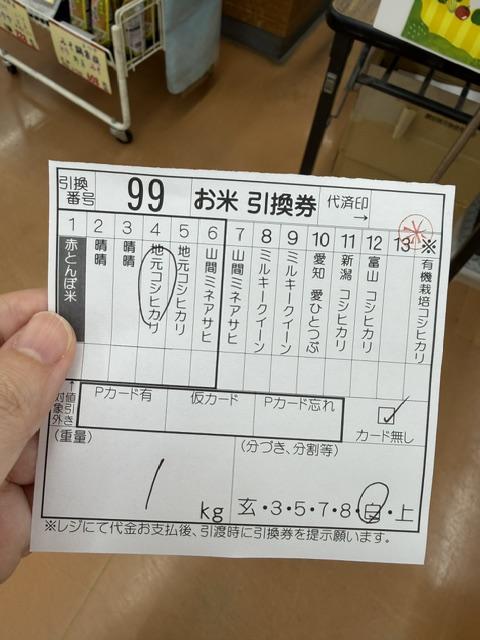 引換番号 99 お米 引換券 代済印→
1 2 3 4 5 6 7 8 9 10 11 12 13 ※
赤とんぼ米
晴晴
晴晴
地元コシヒカリ
地元コシヒカリ
山間ミネアサヒ
山間ミネアサヒ
ミルキークイーン
ミルキークイーン
愛知 愛ひとつぶ
新潟 コシヒカリ
富山 コシヒカリ
有機栽培コシヒカリ
↑値引き対象外
Pカード有 仮カード Pカード忘れ
カード無し
(重量) (分づき、分割等)
1 kg 玄・3・5・7・8・白・上
※レジにて代金お支払後、引渡時に引換券を提示願います。